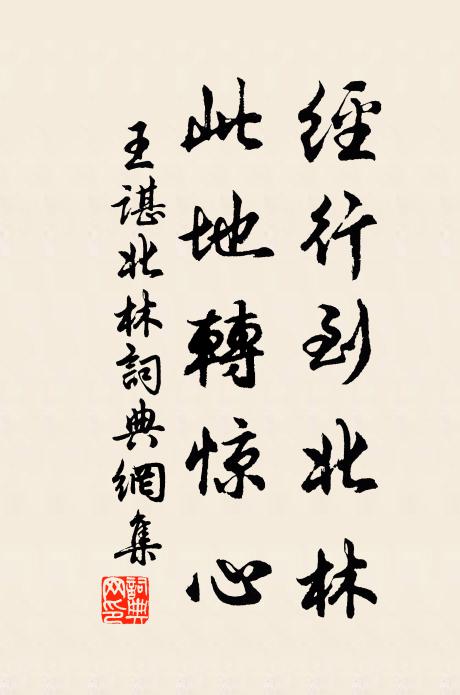 經行到北林
此地轉惊心
王諶北林詞典網集
詞典网印